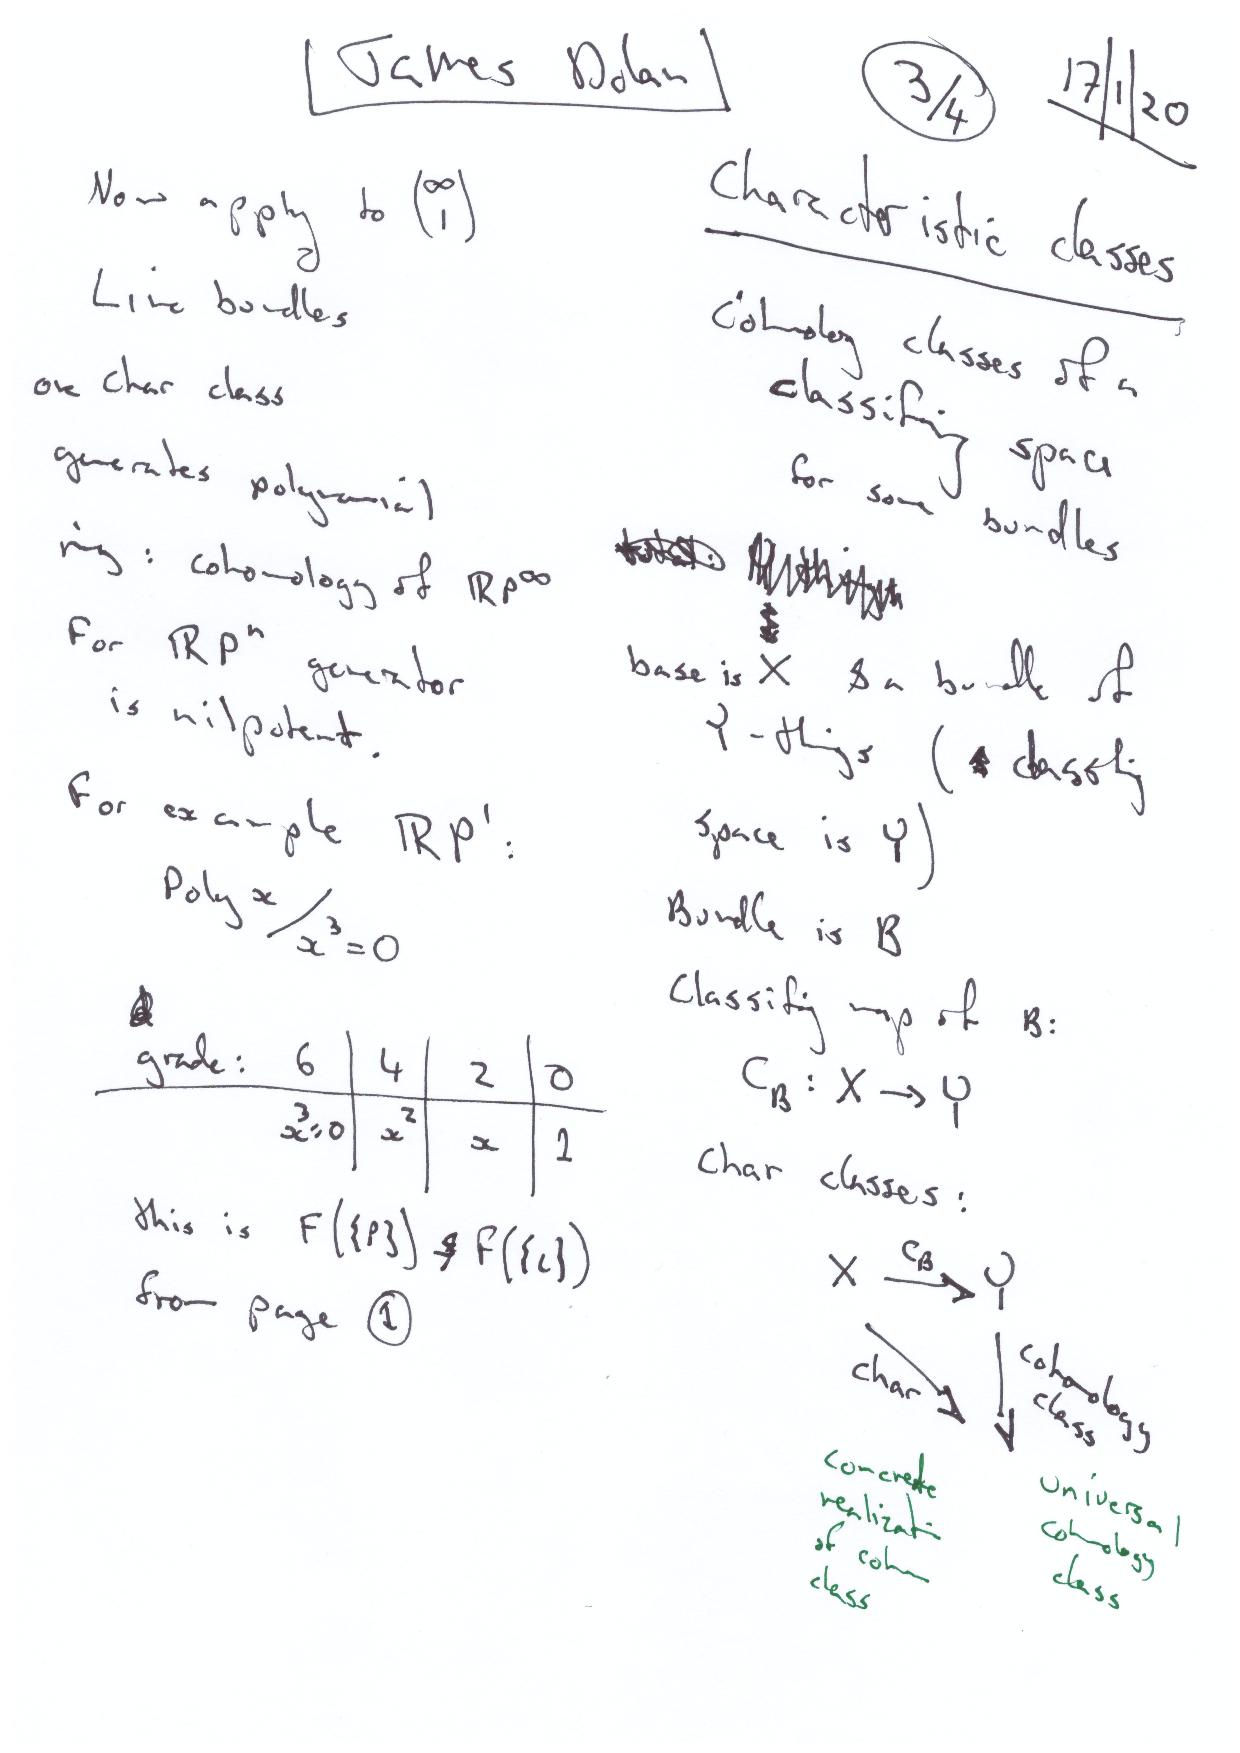 James Dolan
3/4
17/1/20
Now apply to (∞ 1)
Line bundles
one char class
generates polynomial
ring: cohomology of ℝP^∞
For ℝP^n generator
is nilpotent.
For example ℝP^1:
Poly x / x^3=0
grade: 6 | 4 | 2 | 0
x^3=0 | x^2 | x | 1
this is F({P}) F({L})
from page ①
Characteristic classes
Cohomology classes of a
classifying space
for some bundles
base is X & a bundle of
Y-things (classifying
space is Y)
Bundle is B
Classifying map of B:
C_B : X → Y
Char classes:
X C_B → Y
char
cohomology
class
concrete
realization
of cohom
class
universal
cohomology
class